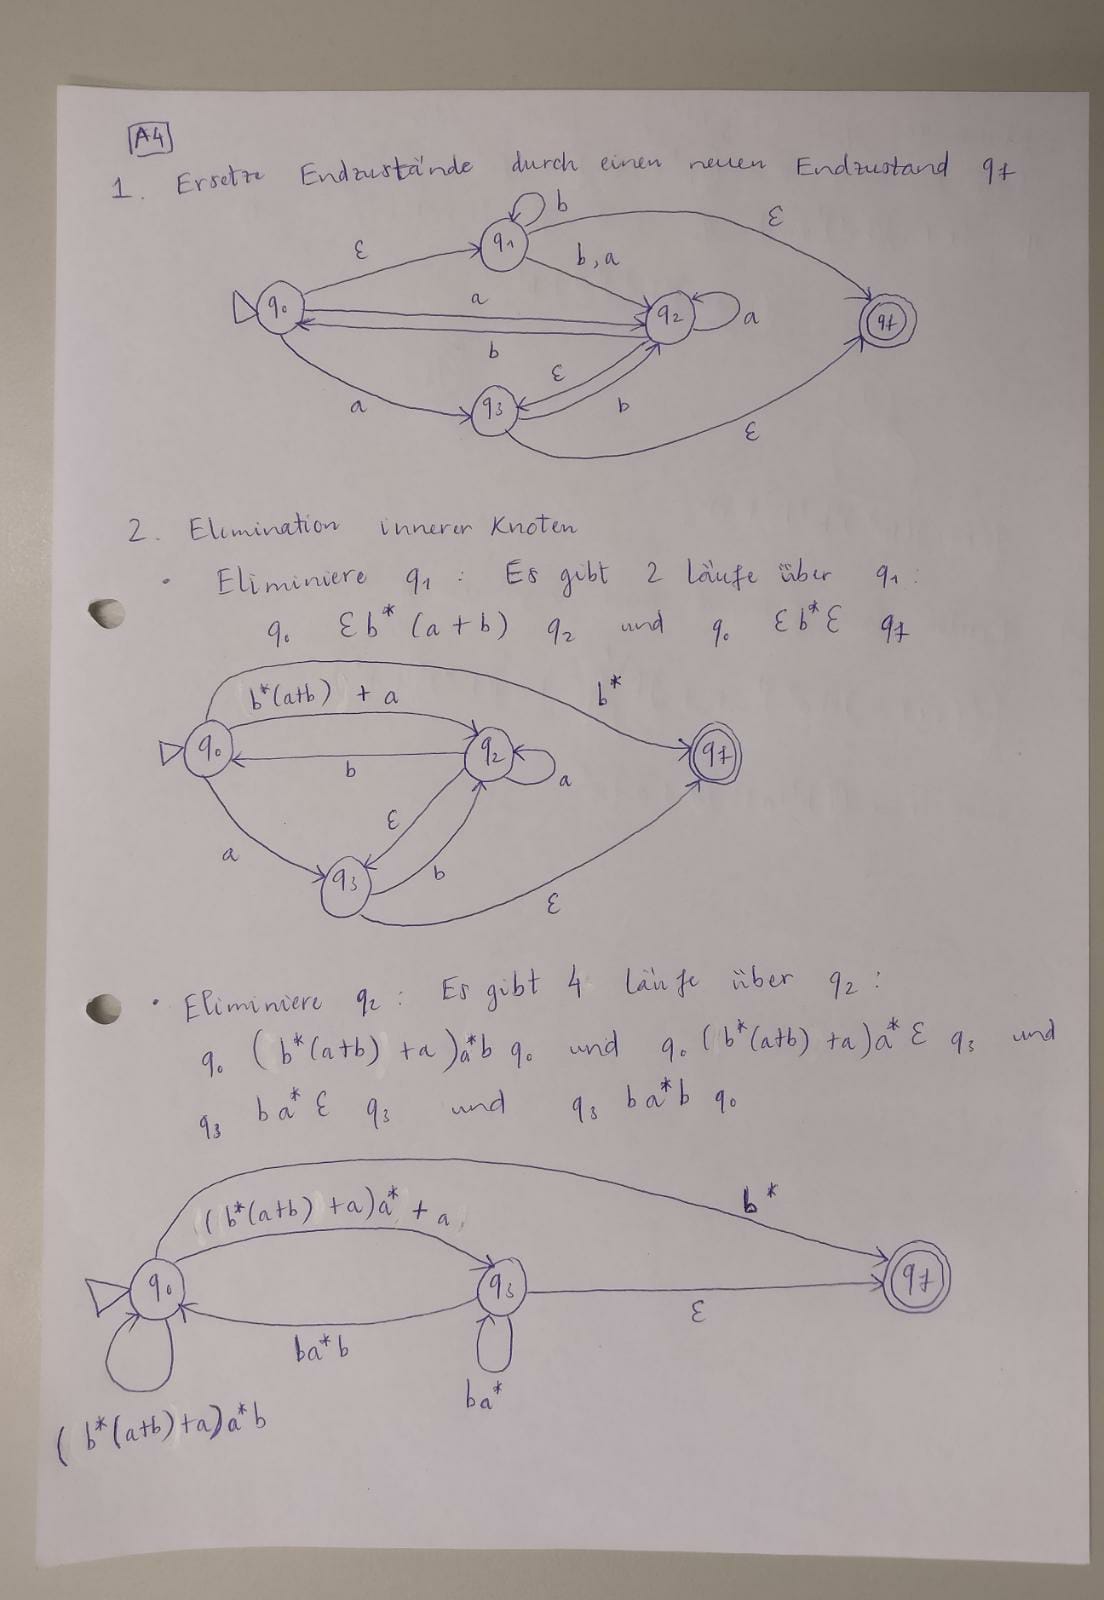 A4
1. Ersetze Endzustände durch einen neuen Endzustand qf
b
ε
q1
ε
b,a
q0
a
q2
a
qf
b
ε
q3
a
b
ε
2. Elimination innerer Knoten
• Eliminiere q1 : Es gibt 2 Läufe über q1 :
q0 εb*(a+b) q2 und q0 εb*ε qf
b*(a+b) + a
b*
q0
q2
qf
b
a
ε
a
q3
b
ε
• Eliminiere q2 : Es gibt 4 Läufe über q2 :
q0 (b*(a+b) +a)a*b q0 und q0 (b*(a+b) +a)a*ε q3 und
q3 ba*ε q3 und q3 ba*b q0
(b*(a+b) +a)a* + a
b*
q0
q3
qf
ε
ba*b
ba*
(b*(a+b)+a)a*b